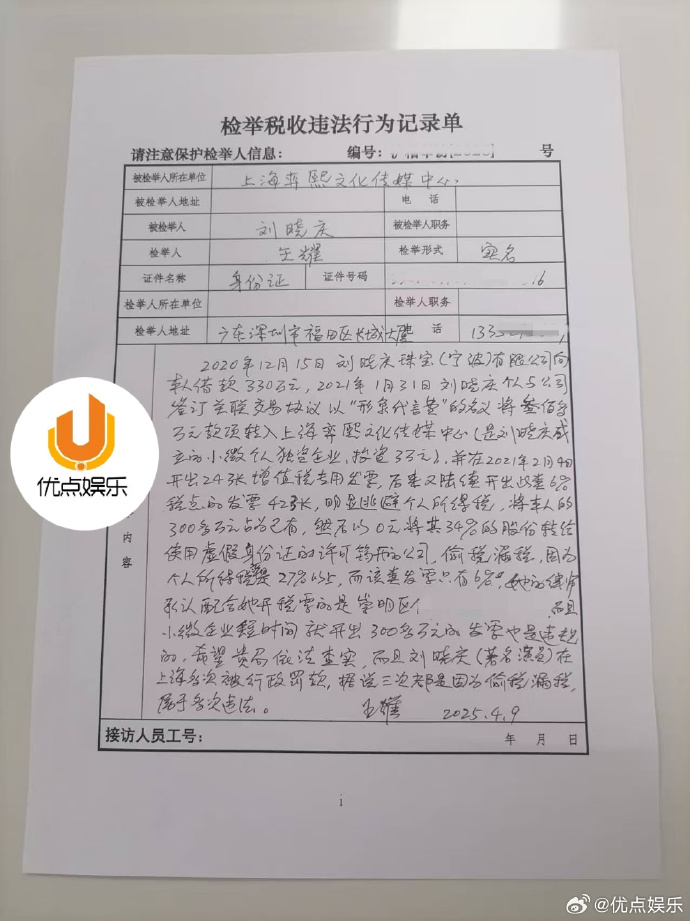 检举税收违法行为记录单
请注意保护检举人信息： 编号： 号
被检举人所在单位 上海弈熙文化传媒中心
被检举人地址 电 话
被检举人 刘晓庆 被检举人职务
检举人 王耀 检举形式 实名
证件名称 身份证 证件号码 16
检举人所在单位 检举人职务
检举人地址 广东深圳市福田区长城大厦 话 133
2020年12月15日刘晓庆珠宝(宁波)有限公司向
本人借款330万元，2021年1月31日刘晓庆个人与公司
签订关联交易协议以“形象代言费”的名义将叁佰多
万元款项转入上海弈熙文化传媒中心(是刘晓庆成
立的小微个人独资企业，投资3万元)，并在2021年2月4日
开出24张增值税专用发票，后来又陆续开出此查6%
税点的发票42张，明显逃避个人所得税，将本人的
300多万元占为己有，然后以0元将其34%的股份转给
使用虚假身份证的许可筠开的公司，偷税漏税，因为
个人所得税是27%以上，而该查发票只有6%，她的律师
承认配合她开税票的是崇明区 而且
小微企业短时间就开出300多万元的发票也是违规
的，希望贵局依法查实，而且刘晓庆(著名演员)在
上海多次被行政罚款，据说三次都是因为偷税漏税，
属于多次违法。 王耀 2025.4.9
内容
接访人员工号： 年 月 日
i
优点娱乐
@优点娱乐